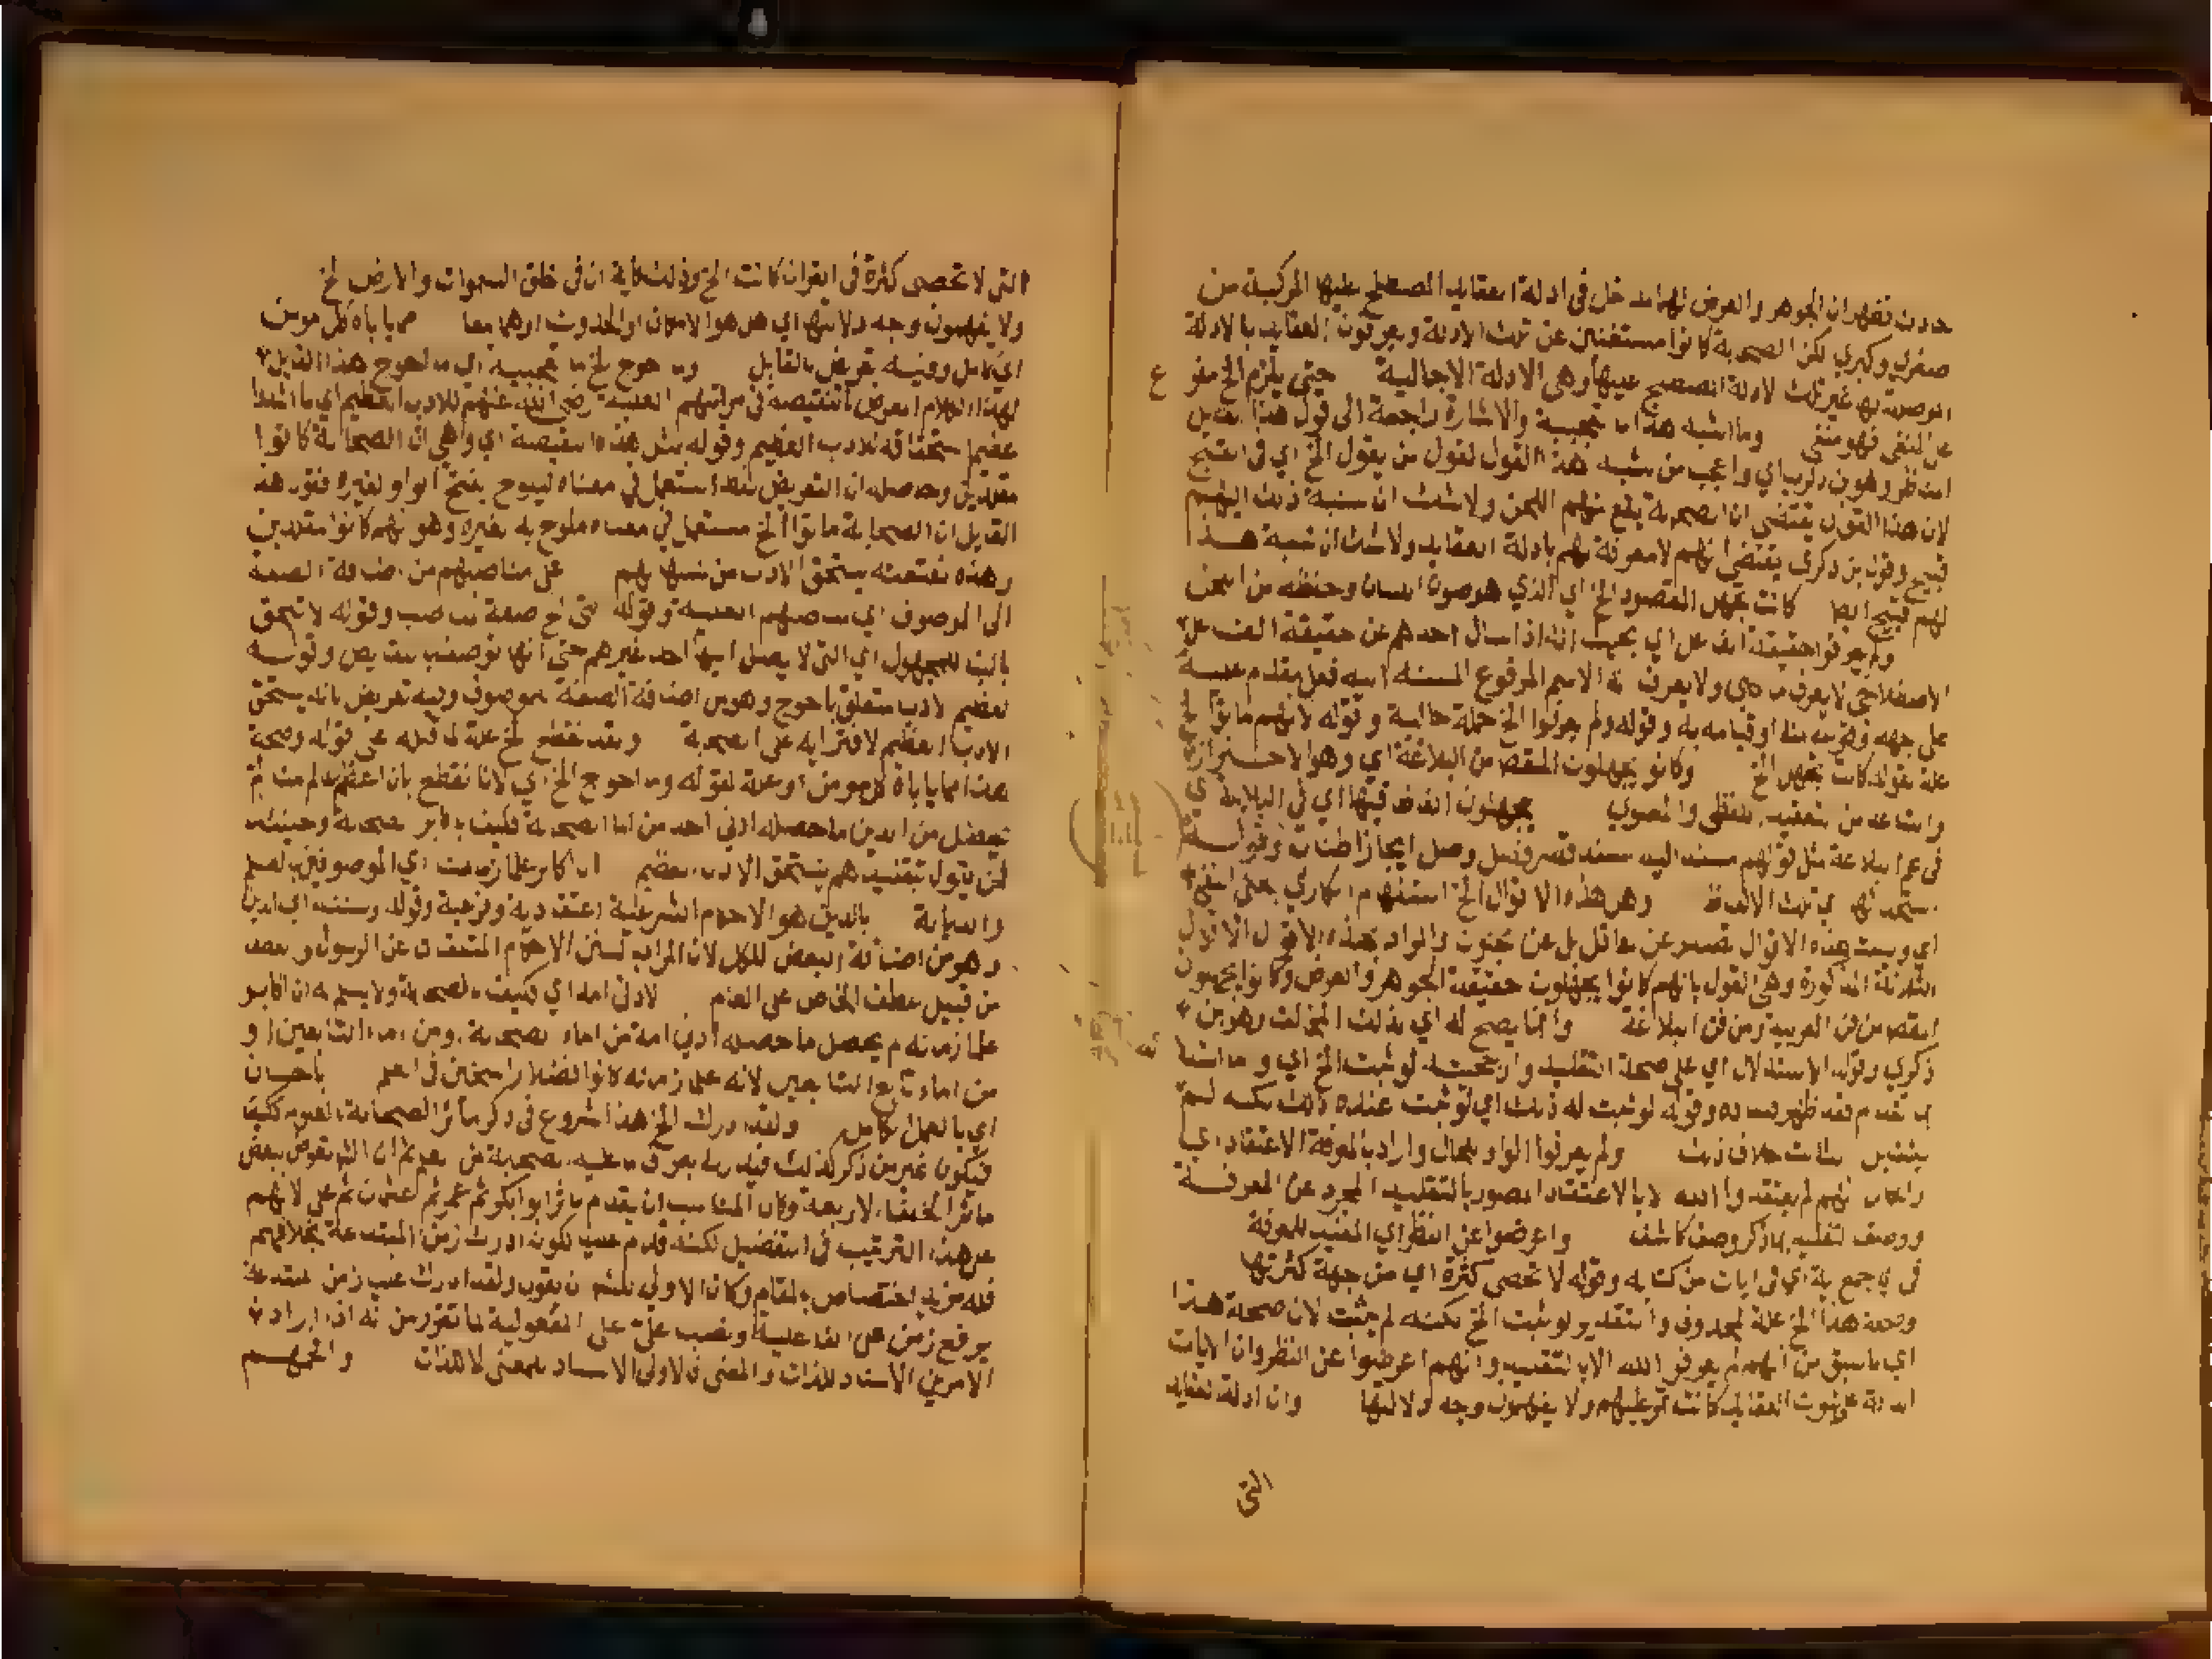 حادث فظهر ان الجوهر والعرض لهما مدخل في ادلة العقايد المصطلح عليها المركبة من
صغرى وكبرى لكن الصحابة كانوا مستغنين عن تلك الادلة ويعرفون العقايد بالادلة
الموصلة لها غير تلك الادلة المصطلح عليها وهي الادلة الاجمالية حتى يلزم الخ مفرع
على النفي فهو منفي وما اشبه هذا ما تعجبية والاشارة راجعة الى قول هذا القايل
لان هذا القول يقتضي ان الصحابة يقع منهم اللحن ولا شك ان نسبة ذلك اليهم
قبيح وقول بن ذكرى يقتضي انهم لا معرفة لهم بادلة العقايد ولا شك ان نسبة هذا
لهم قبيح ايضا كانت تجهل المقصود الخ اي الذي هو صون اللسان وحفظه من اللحن
ولم يعرفوا حقيقة الفاعل اي بحيث انه اذا سال احدهم عن حقيقة الفاعل
الاصطلاحي لا يعرف ما هي ولا يعرف انه الاسم المرفوع المسند اليه فعل مقدم عليه
على جهة وقوعه منه او قيامه به وقوله ولم يعرفوا الخ جملة حالية وقوله لانهم ماتوا الخ
علة لقوله كانت تجهل الخ وكانوا يجهلون المقصد من البلاغة اي وهو الاحتراز
والتباعد من التعقيد اللفظي والمعنوي يجهلون الفاظ فيها اي في البلاغة اي
في علم البلاغة مثل قولهم مسند اليه مسند قصر فصل وصل ايجاز اطناب وقوله
وهل هذه الا قوال الخ استفهام انكاري بمعنى النفي
اي وليست هذه الاقوال تصدر عن عاقل بل عن مجنون والمراد بهذه الاقوال الاقوال
الثلاثة المذكورة وهي القول بانهم كانوا يجهلون حقيقة الجوهر والعرض وكانوا يجهلون
المقصد من فن العربية ومن فن البلاغة وانما يصح له اي لذلك المخالف وهو بن
ذكرى وقوله الاستدلال اي على صحة التقليد وارجحيته لو ثبت الخ اي واما انه
ما تقدم فقد ظهر فساده وقوله لو ثبت له ذلك اي لو ثبت عنده ذلك لكنه لم
يثبت بل الثابت خلاف ذلك ولم يعرفوا الواو للحال واراد بالمعرفة الاعتقاد اي
والحال انهم لم يعتقدوا الله الا بالاعتقاد المصور بالتقليد المجرد عن المعرفة
ووصف التقليد بما ذكر وصف كاشف واعرضوا عن النظر اي المفيد للمعرفة
في اي جمع اية اي في ايات من كتابه وقوله لا تحصى كثرة اي من جهة كثرتها
وصحة هذا الخ علة لمحذوف والتقدير لو ثبت الخ لكنه لم يثبت لان صحة هذا
اي ما سبق من انهم لم يعرفوا الله الا بالتقليد وانهم اعرضوا عن النظر وان الايات
الدالة على ثبوت العقايد كانت تمر عليهم ولا يفهمون وجه دلالتها وان ادلة العقايد
التي
التي لا تحصى كثرة في القران كانت الخ وذلك كاية ان في خلق السموات والارض الخ
ولا يفهمون وجه دلالتها اي هل هو الامكان او الحدوث او هما معا مما ياباه كل مومن
اي كامل وفيه تعريض بالقايل وما احوج الخ ما تعجبية اي ما احوج هذا القايل
لهذا الكلام المعرض بالنقيصة في مراتبهم العلية رضي الله عنهم للادب العظيم اي ما اشد
عظيم استحقاقه للادب العظيم وقوله بمثل هذه النقيصة اي وهي ان الصحابة كانوا
مقلدين وحاصله ان التعريض لفظ استعمل في معناه ليلوح بفتح الواو لغيره فقول هذا
القايل ان الصحابة ماتوا الخ مستعمل في معناه ملوح به لغيره وهو انهم كانوا مقلدين
وهذه نقيصة يستحق الادب من نسبها لهم على مناصبهم من اضافة الصفة
الى الموصوف اي مناصبهم العلية وقوله التي الخ صفة لمناصب وقوله لا تلحق
بالبنا للمجهول اي التي لا يصل اليها احد غيرهم حتى انها توصف بنقايص وقوله
لعظيم الادب متعلق باحوج وهو من اضافة الصفة للموصوف وفيه تعريض بانه يستحق
الادب العظيم لافترايه على الصحابة ولقد نقطع الخ علة لما قبله من قوله وصحة
هذا مما ياباه كل مومن او علة لقوله وما احوج الخ اي لانا نقطع بان اعظم عالم منا لم
يحصل من الدين ما حصله ادنى احد من اما الصحابة فكيف باكابر الصحابة وحينئذ
لمن يقول بتقليدهم يستحق الادب العظيم اكابر علما زماننا اي الموصوفين بالعلم
والديانة بالدين هو الاحكام الشرعية اعتقادية وفرعية وقوله وسننه اي الدين
وهو من اضافة البعض للكل لان المراد بالسنن الاحكام المتلقات عن الرسول وبعده
من قبيل عطف الخاص على العام لادنى امة اي فكيف بالصحابة ولا يسلم ان اكابر
علما زمانه لم يحصل ما حصله ادنى امة من اماء الصحابة ومن اماء التابعين او
من اماء تابع التابعين لانه علما زمانه كانوا فضلا راسخين في العلم باحسان
اي بالعمل الكامل ولقد ادرك الخ هذا شروع في ذكر ماثر الصحابة بالعلوم فكيف
ماثر الخلفا الاربعة وكان المناسب ان يقدم ماثر ابو ابكر ثم عمر ثم عثمان ثم علي لانهم
على هذا الترتيب في التفضيل لكنه قدم علي لكونه ادرك زمن المبتدعة بخلافهم
فله مزيد اختصاص بالمقام وكان الاولى للش ان يقول ولقد ادرك علي زمن المبتدعة
برفع زمن على الفاعلية ونصب علي على المفعولية لما تقرر من انه اذا دار
الامر بين الاسناد للذات والمعنى فالاولى الاسناد للمعنى لا للذات والجمهم